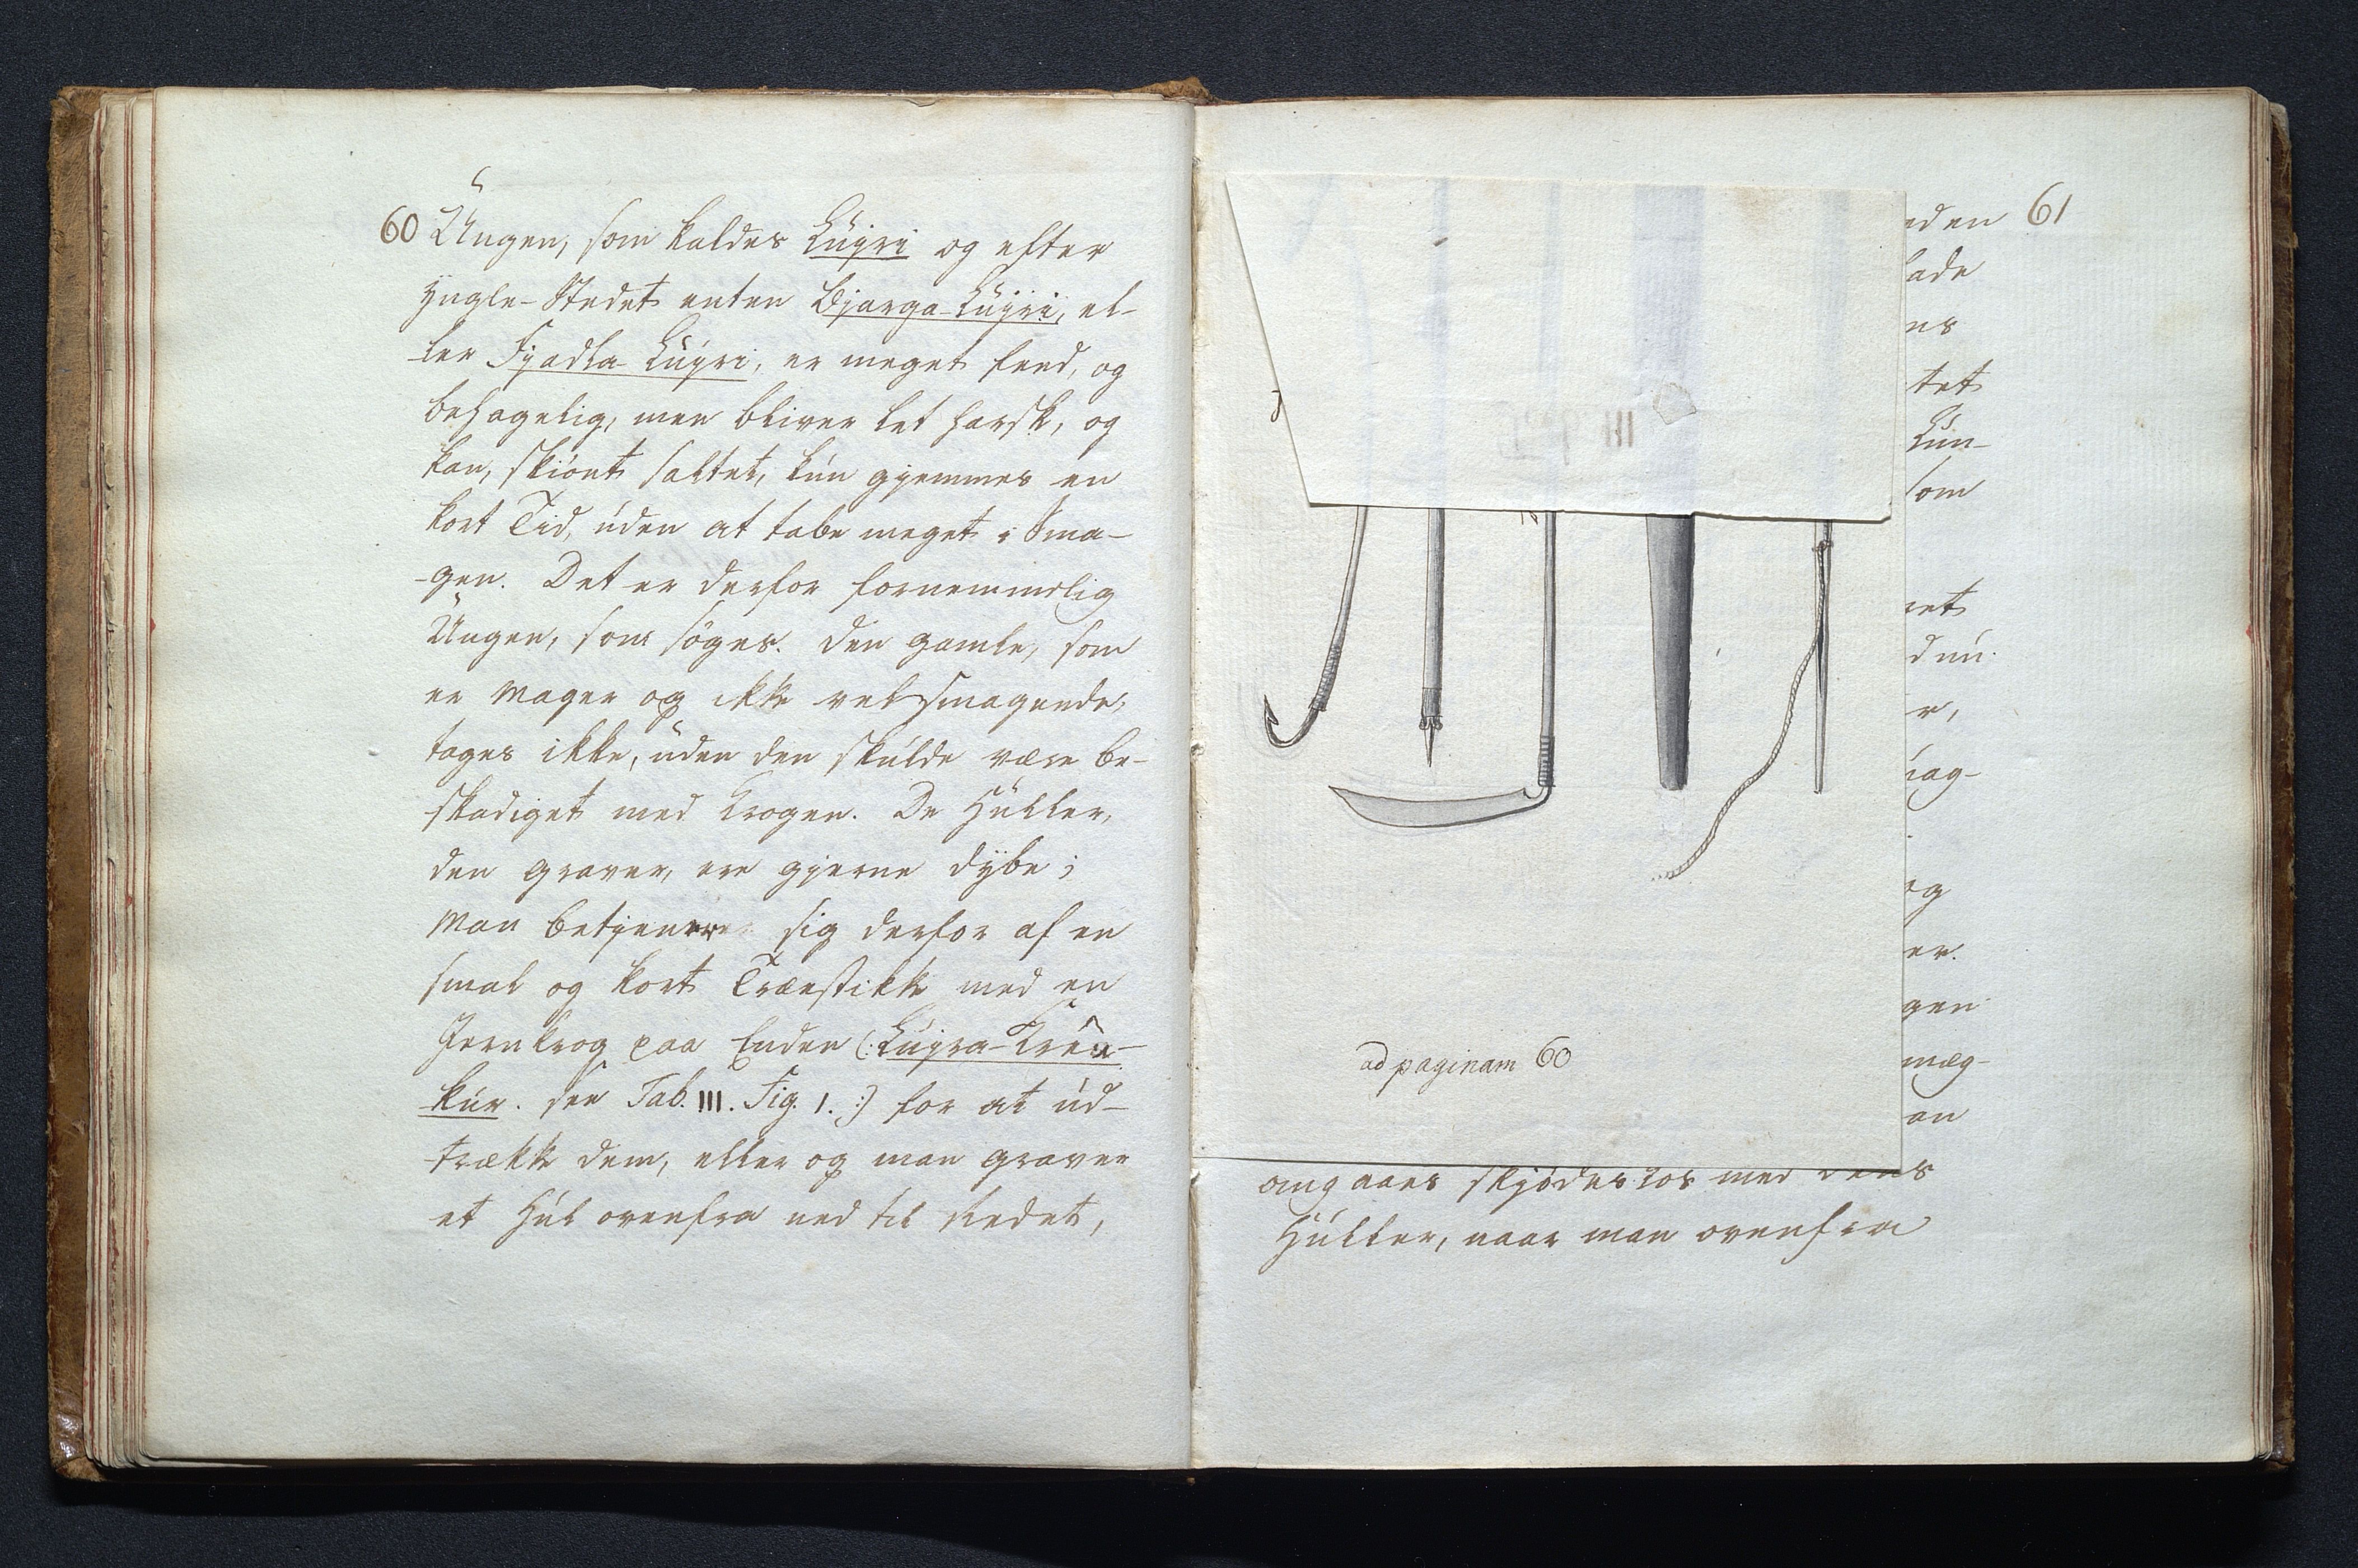 60
Ungen, som kaldes Lüjri og efter
Yngle-Stedet enten Bjarga-Lüjri, el-
ler Fjadla-Lüjri, er meget feed, og
behagelig, men bliver let harsk, og
kan, skiönt saltet, kún gjemmes en
kort Tid, úden at tabe meget i Sma-
-gen. Det er derfor fornemmelig
Ungen, som söges. Den gamle, som
er mager og ikke velsmagende,
tages ikke, úden den skúlde være be-
skadiget med Krogen. De Húller,
den graver, ere gjerne dÿbe;
man betjener sig derfor af en
smal og kort Træestikke med en
Jernkrog paa Enden (: Lújra-Krêa-
kúr. see Tab. III. Fig. 1. :) for at úd-
trække dem, eller og man graver
et Húl ovenfra ned til Redet,
61
eden
lade
ns
tet
Kún-
som
ret
d nú
r,
iag-
og
er.
gen
mæg-
an
ad paginam 60
omgaaes skjödeslös med dens
Húller, naar man ovenfra